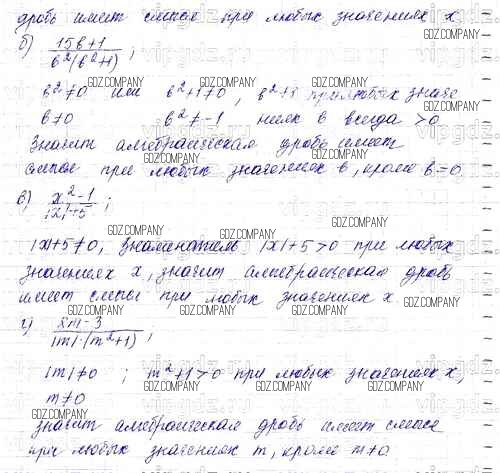 дробь имеет смысл при любых значениях x
б) 15b+1 / b²(b²+1);
b²≠0 или b²+1≠0, b²+1 при любых значе
b≠0 b²≠-1 ниях b всегда >0
Значит алгебраическая дробь имеет
смысл при любых значениях b, кроме b=0
в) x²-1 / |x|+5;
|x|+5≠0, знаменатель |x|+5>0 при любых
значениях x, значит алгебраическая дробь
имеет смысл при любых значениях x.
г) 2m-3 / |m|·(m²+1);
|m|≠0 ; m²+1>0 при любых значениях x,
m≠0
значит алгебраическая дробь имеет смысл
при любых значениях m, кроме m≠0